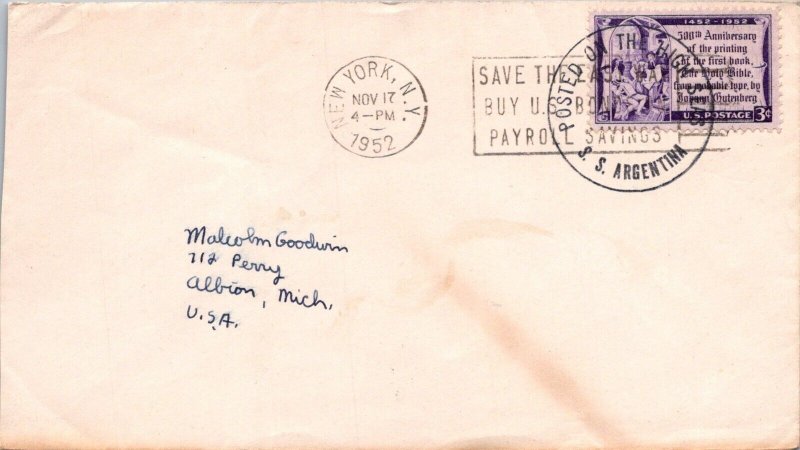 NEW YORK, N.Y.
NOV 17
4-PM
1952
SAVE THE EASY WAY
BUY U.S. BONDS
PAYROLL SAVINGS
POSTED ON THE HIGH SEAS
S. S. ARGENTINA
1452-1952
500th Anniversary
of the printing
of the first book,
The Holy Bible,
from movable type, by
Johann Gutenberg
U.S. POSTAGE 3¢
Malcolm Goodwin
712 Perry
Albion, Mich.
U.S.A.